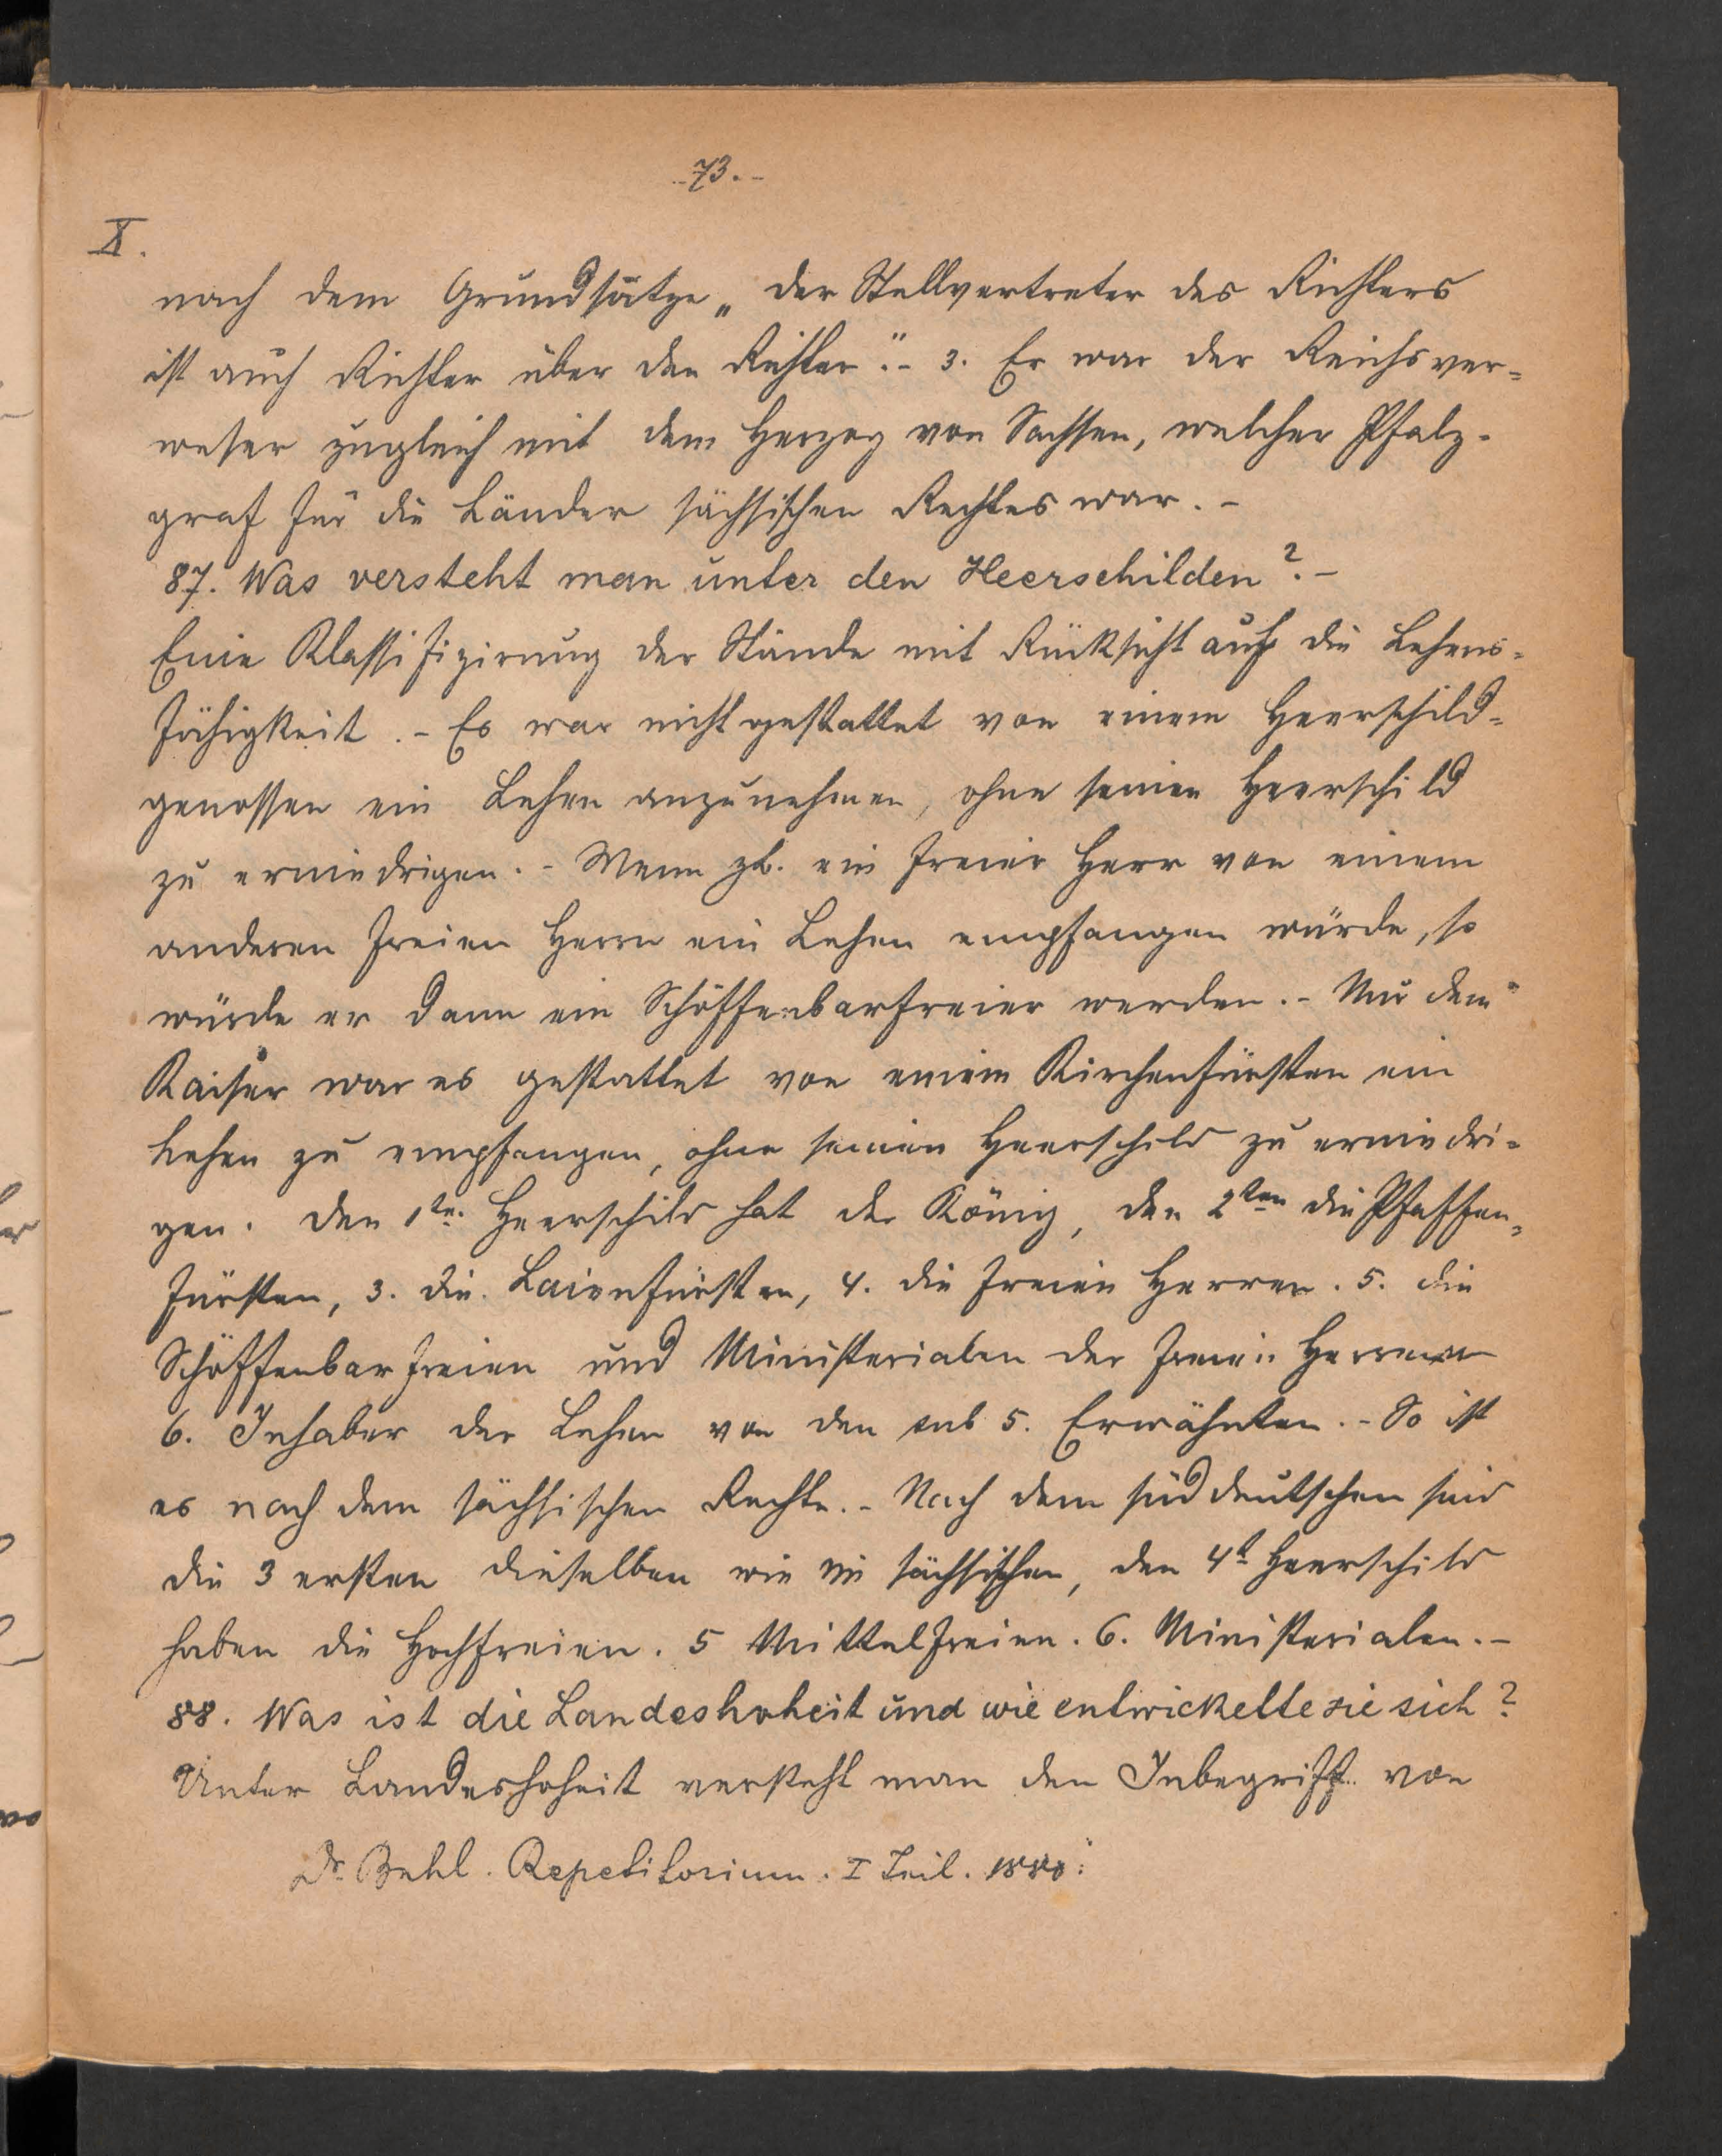 - 73. -
X.
nach dem Grundsatze „der Stellvertreter des Richters
ist auch Richter über den Richter". - 3. Er war der Reichsver=
weser zugleich mit dem Herzog von Sachsen, welcher Pfalz-
graf für die Länder sächsischen Rechtes war. -
87. Was versteht man unter den Heerschilden? -
Eine Klassifizirung der Stände mit Rücksicht auf die Lehens=
fähigkeit. - Es war nicht gestattet von einem Heerschild=
genossen ein Lehen anzunehmen, ohne seinen Heerschild
zu erniedrigen. - Wenn zb. ein freier Herr von einem
anderen freien Herrn ein Lehen empfangen würde, so
würde er dann ein Schöffenbarfreier werden. - Nur dem
Kaiser war es gestattet von einem Kirchenfürsten ein
Lehen zu empfangen, ohne seinen Heerschild zu erniedri=
gen. Den 1ten Heerschild hat der König, den 2ten die Pfaffen=
fürsten, 3. die Laienfürsten, 4. die freien Herren. 5. die
Schöffenbarfreien und Ministerialen der freien Herren
6. Inhaber der Lehen von den sub 5. Erwähnten. - So ist
es nach dem sächsischen Rechte. - Nach dem süddeutschen sind
die 3 ersten dieselben wie im sächsischen, den 4t Heerschild
haben die Hochfreien. 5 Mittelfreien. 6. Ministerialen. -
88. Was ist die Landeshoheit und wie entwickelte sie sich?
Unter Landeshoheit versteht man den Inbegriff von
Dr. Repetitorium. I Teil. 1888.